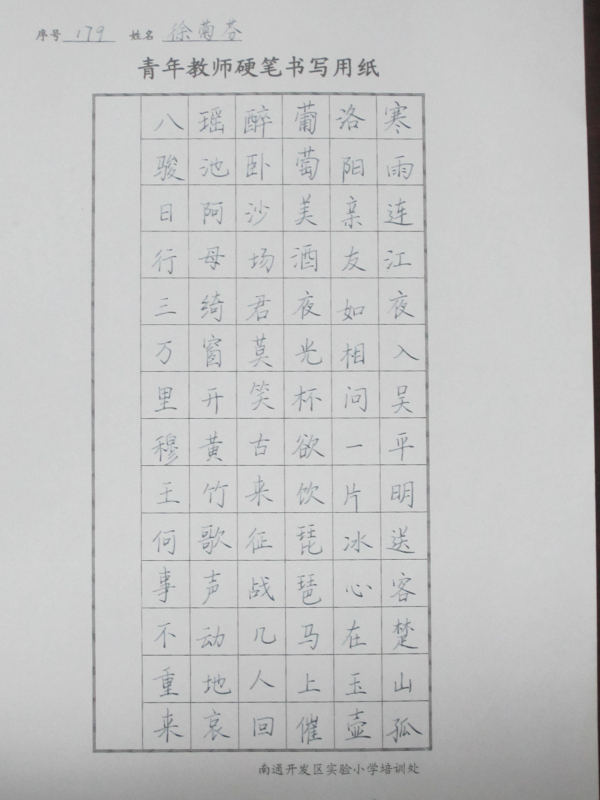 序号 179 姓名 徐菊芬
青年教师硬笔书写用纸
寒雨连江夜入吴平明送客楚山孤
洛阳亲友如相问一片冰心在玉壶
葡萄美酒夜光杯欲饮琵琶马上催
醉卧沙场君莫笑古来征战几人回
瑶池阿母绮窗开黄竹歌声动地哀
八骏日行三万里穆王何事不重来
南通开发区实验小学培训处